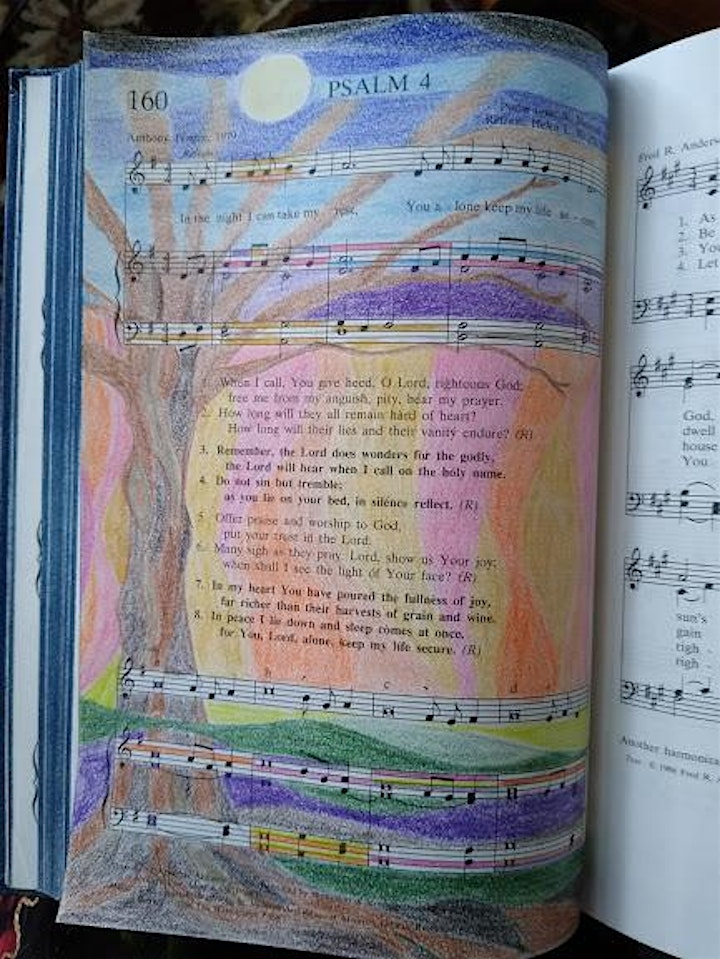 160
PSALM 4
Anthony 1979
Refrain
In the night I can take my rest, You a - lone keep my life
1. When I call, You give heed, O Lord, righteous God;
free me from my anguish, pity, hear my prayer.
2. How long will they all remain hard of heart?
How long will their lies and their vanity endure? (R)
3. Remember, the Lord does wonders for the godly,
the Lord will hear when I call on the holy name.
4. Do not sin but tremble;
as you lie on your bed, in silence reflect. (R)
5. Offer praise and worship to God,
put your trust in the Lord.
6. Many sigh as they pray. Lord, show us Your joy;
when shall I see the light of Your face? (R)
7. In my heart You have poured the fullness of joy,
far richer than their harvests of grain and wine.
8. In peace I lie down and sleep comes at once,
for You, Lord, alone, keep my life secure. (R)
b
c
d
Fred R. Anders
1. As
2. Be
3. Yo
4. Let
God,
dwell
house
You
sun's
gain
tigh -
righ -
Another harmoniza
Text © 1986 Fred R.